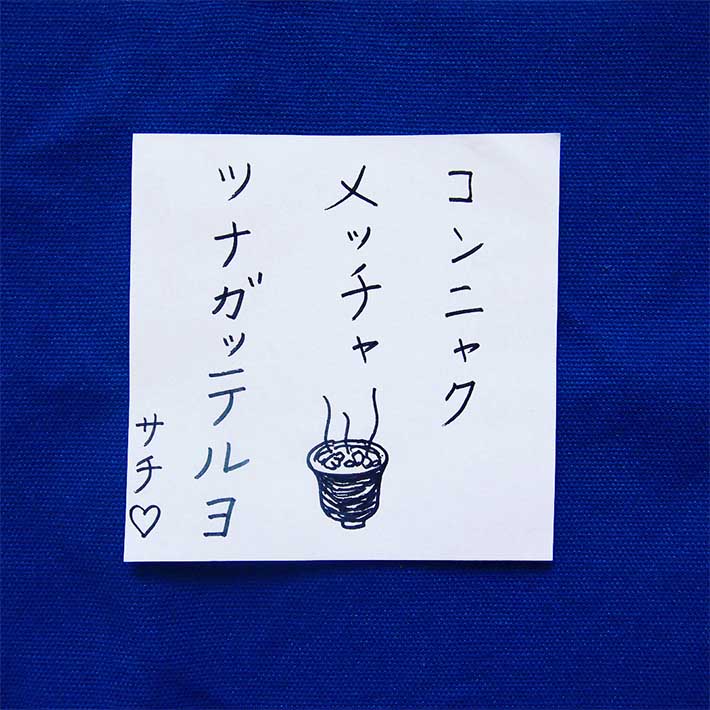 コンニャク
メッチャ
ツナガッテルヨ
サチ♡